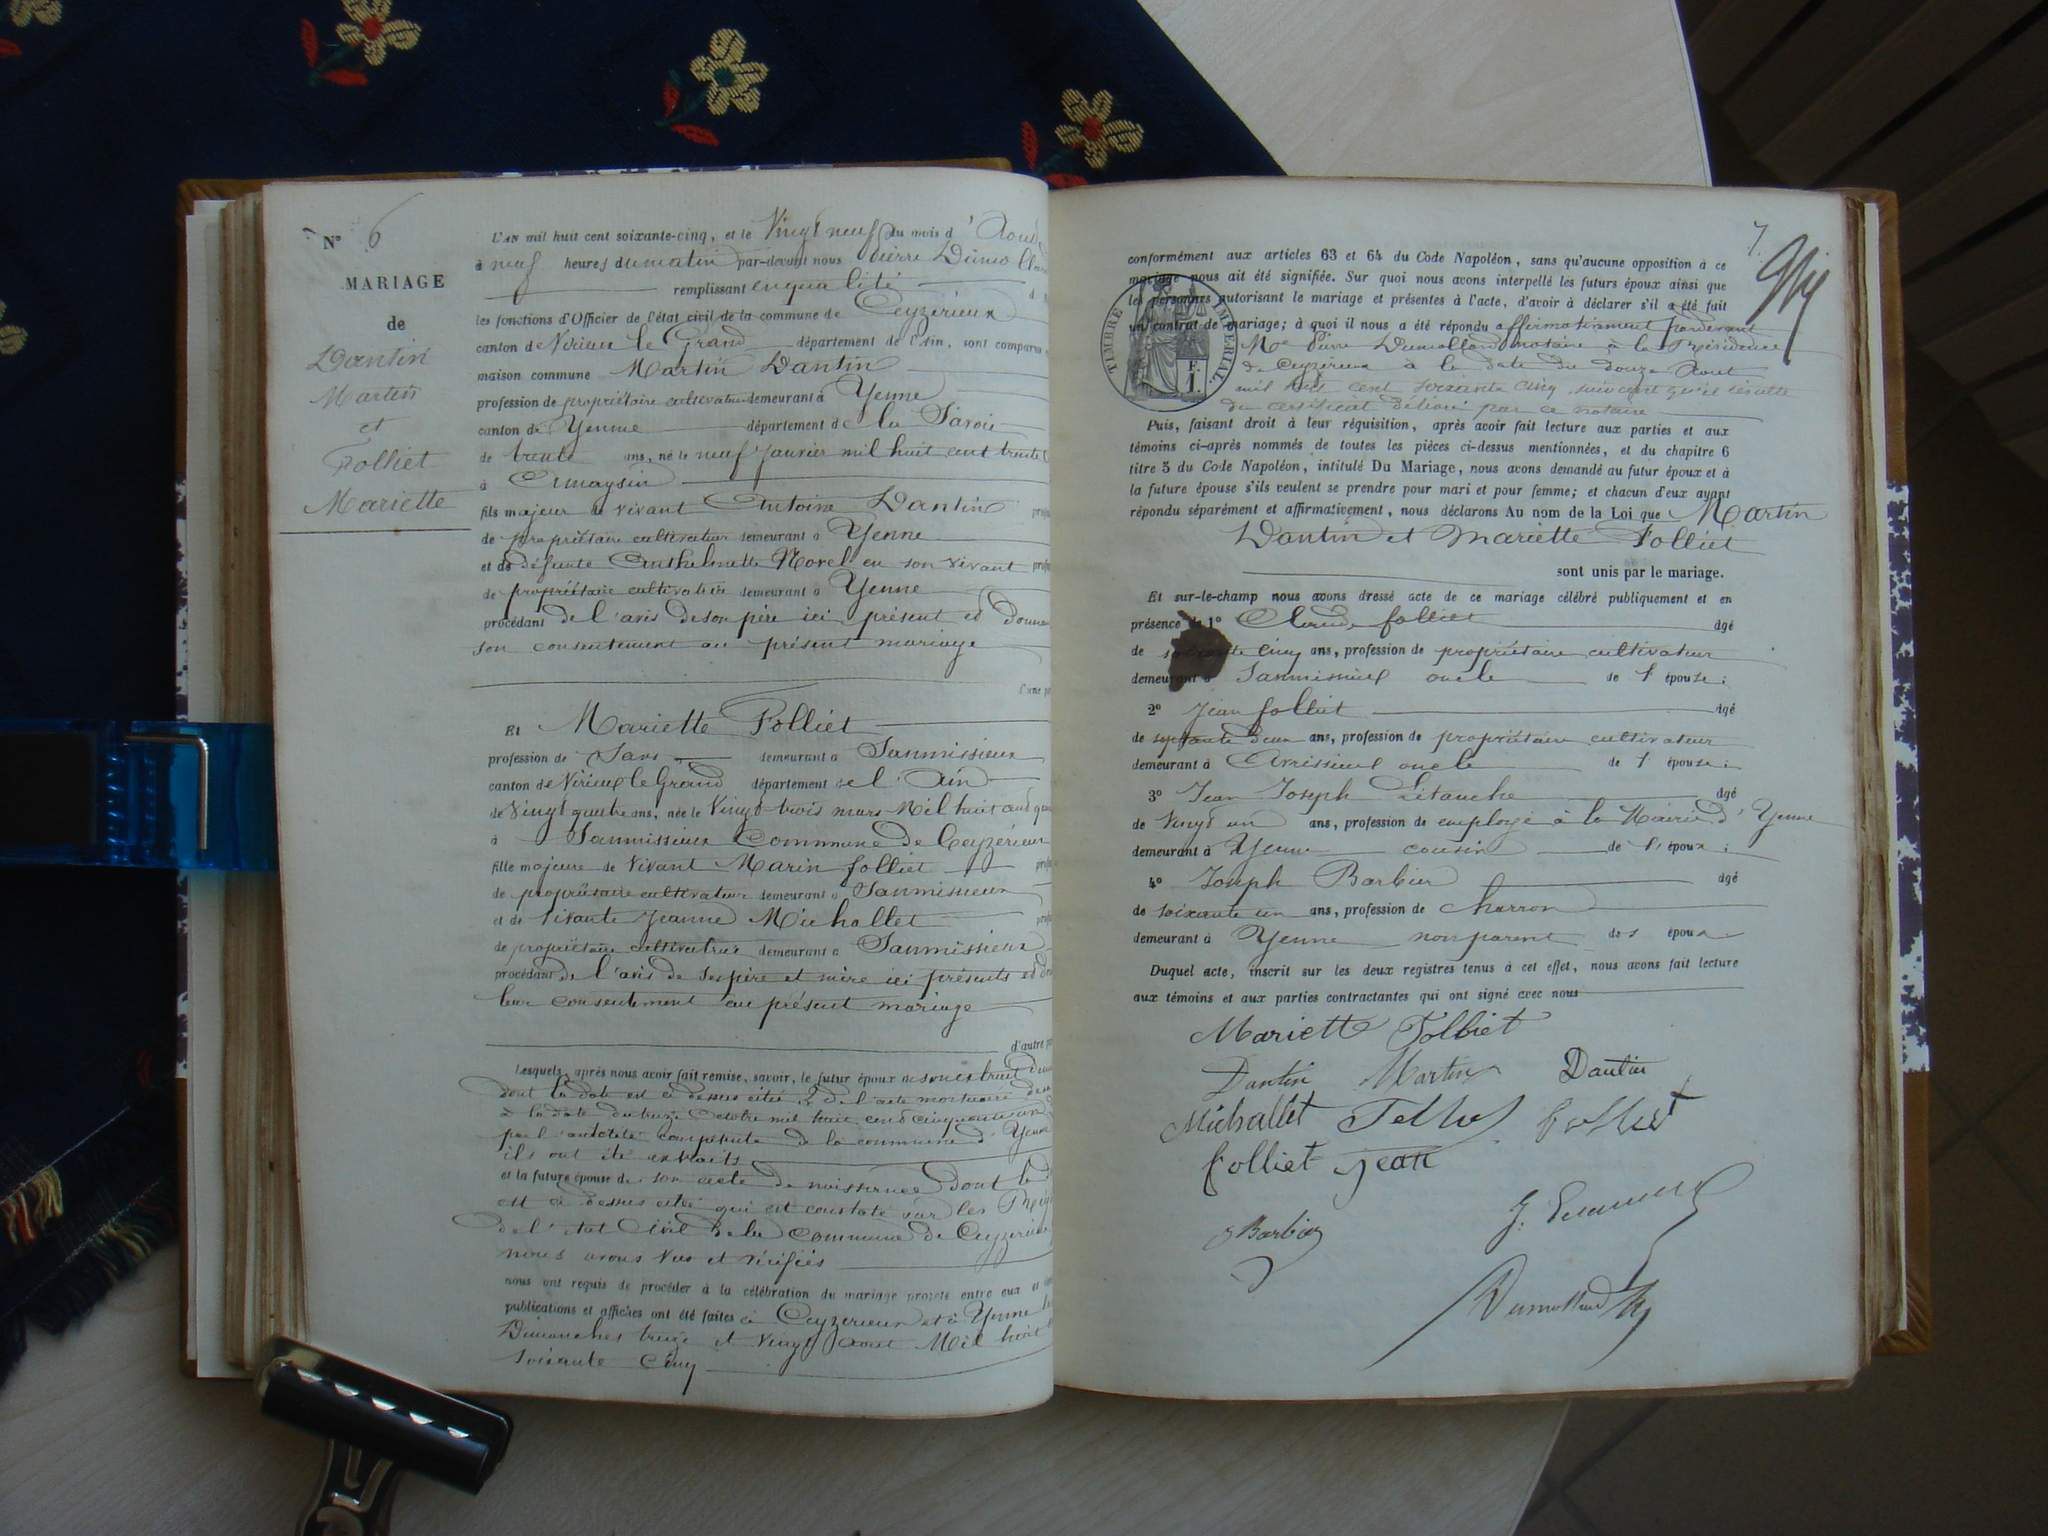 N° 6
MARIAGE
de
Dantin
Martin
et
Folliet
Mariette
L'AN mil huit cent soixante-cinq, et le Vingt neuf du mois d'Aout
à neuf heures du matin par-devant nous Pierre Dumollard
remplissant en qualité
les fonctions d'Officier de l'état civil de la commune de Ceyzérieux
canton de Virieu le Grand département de l'Ain, sont comparus
maison commune Martin Dantin
profession de propriétaire cultivateur demeurant à Yenne
canton de Yenne département de la Savoie
de trente ans, né le neuf janvier mil huit cent trente
à
fils majeur de vivant Antoine Dantin
de propriétaire cultivateur demeurant à Yenne
et de défunte Anthelmette Morel en son vivant
de propriétaire cultivatrice demeurant à Yenne
procédant de l'avis de son père ici présent et donnant
son consentement au présent mariage
d'une part
Et Mariette Folliet
profession de Sans demeurant à Sanmissieux
canton de Virieu le Grand département de l'Ain
de Vingt quatre ans, née le Vingt trois mars Mil huit cent
à Sanmissieux Commune de Ceyzérieux
fille majeure de Vivant Marin folliet
de propriétaire cultivateur demeurant à Sanmissieux
et de vivante Jeanne Michallet
de propriétaire cultivatrice demeurant à Sanmissieux
procédant de l'avis de ses père et mère ici présents et
leur consentement au présent mariage
d'autre part
Lesquels, après nous avoir fait remise, savoir, le futur époux de son extrait
dont la date est ci dessus citée et de l'acte mortuaire de sa
à la date du treize Octobre mil huit cent cinquante un
par l'autorité compétente de la commune d'Yenne
ils ont été extraits
et la future épouse de son acte de naissance dont la
est ci dessus citée qui est constaté sur les
de l'état Civil de la commune de Ceyzérieux
nous avons vus et vérifiés
nous ont requis de procéder à la célébration du mariage projeté entre eux et
publications et affiches ont été faites à Ceyzérieux et à Yenne les
Dimanches treize et vingt aout Mil huit
soixante Cinq
7
conformément aux articles 63 et 64 du Code Napoléon, sans qu'aucune opposition à ce
mariage nous ait été signifiée. Sur quoi nous avons interpellé les futurs époux ainsi que
les personnes autorisant le mariage et présentes à l'acte, d'avoir à déclarer s'il a été fait
un contrat de mariage; à quoi il nous a été répondu affirmativement pardevant
TIMBRE IMPÉRIAL
F.
1.
Me Pierre Dumollard notaire à la Résidence
de Ceyzérieux à la date du douze Aout
mil huit cent soixante cinq, suivant qu'il résulte
du certificat délivré par ce notaire
Puis, faisant droit à leur réquisition, après avoir fait lecture aux parties et aux
témoins ci-après nommés de toutes les pièces ci-dessus mentionnées, et du chapitre 6
titre 5 du Code Napoléon, intitulé Du Mariage, nous avons demandé au futur époux et à
la future épouse s'ils veulent se prendre pour mari et pour femme; et chacun d'eux ayant
répondu séparément et affirmativement, nous déclarons Au nom de la Loi que Martin
Dantin et Mariette Folliet
sont unis par le mariage.
Et sur-le-champ nous avons dressé acte de ce mariage célébré publiquement et en
présence de 1° Claude folliet âgé
de soixante Cinq ans, profession de propriétaire cultivateur
demeurant à Sanmissieux oncle de l'épouse;
2° Jean folliet âgé
de septante deux ans, profession de propriétaire cultivateur
demeurant à Avrissieux oncle de l'épouse;
3° Jean Joseph âgé
de Vingt un ans, profession de employé à la Mairie d'Yenne
demeurant à Yenne cousin de l'époux;
4° Joseph Barbier âgé
de soixante un ans, profession de charron
demeurant à Yenne non parent des époux
Duquel acte, inscrit sur les deux registres tenus à cet effet, nous avons fait lecture
aux témoins et aux parties contractantes qui ont signé avec nous
Mariette Folliet
Dantin Martin Dantin
Michallet folliet
folliet jean
J Barbier
Dumollard